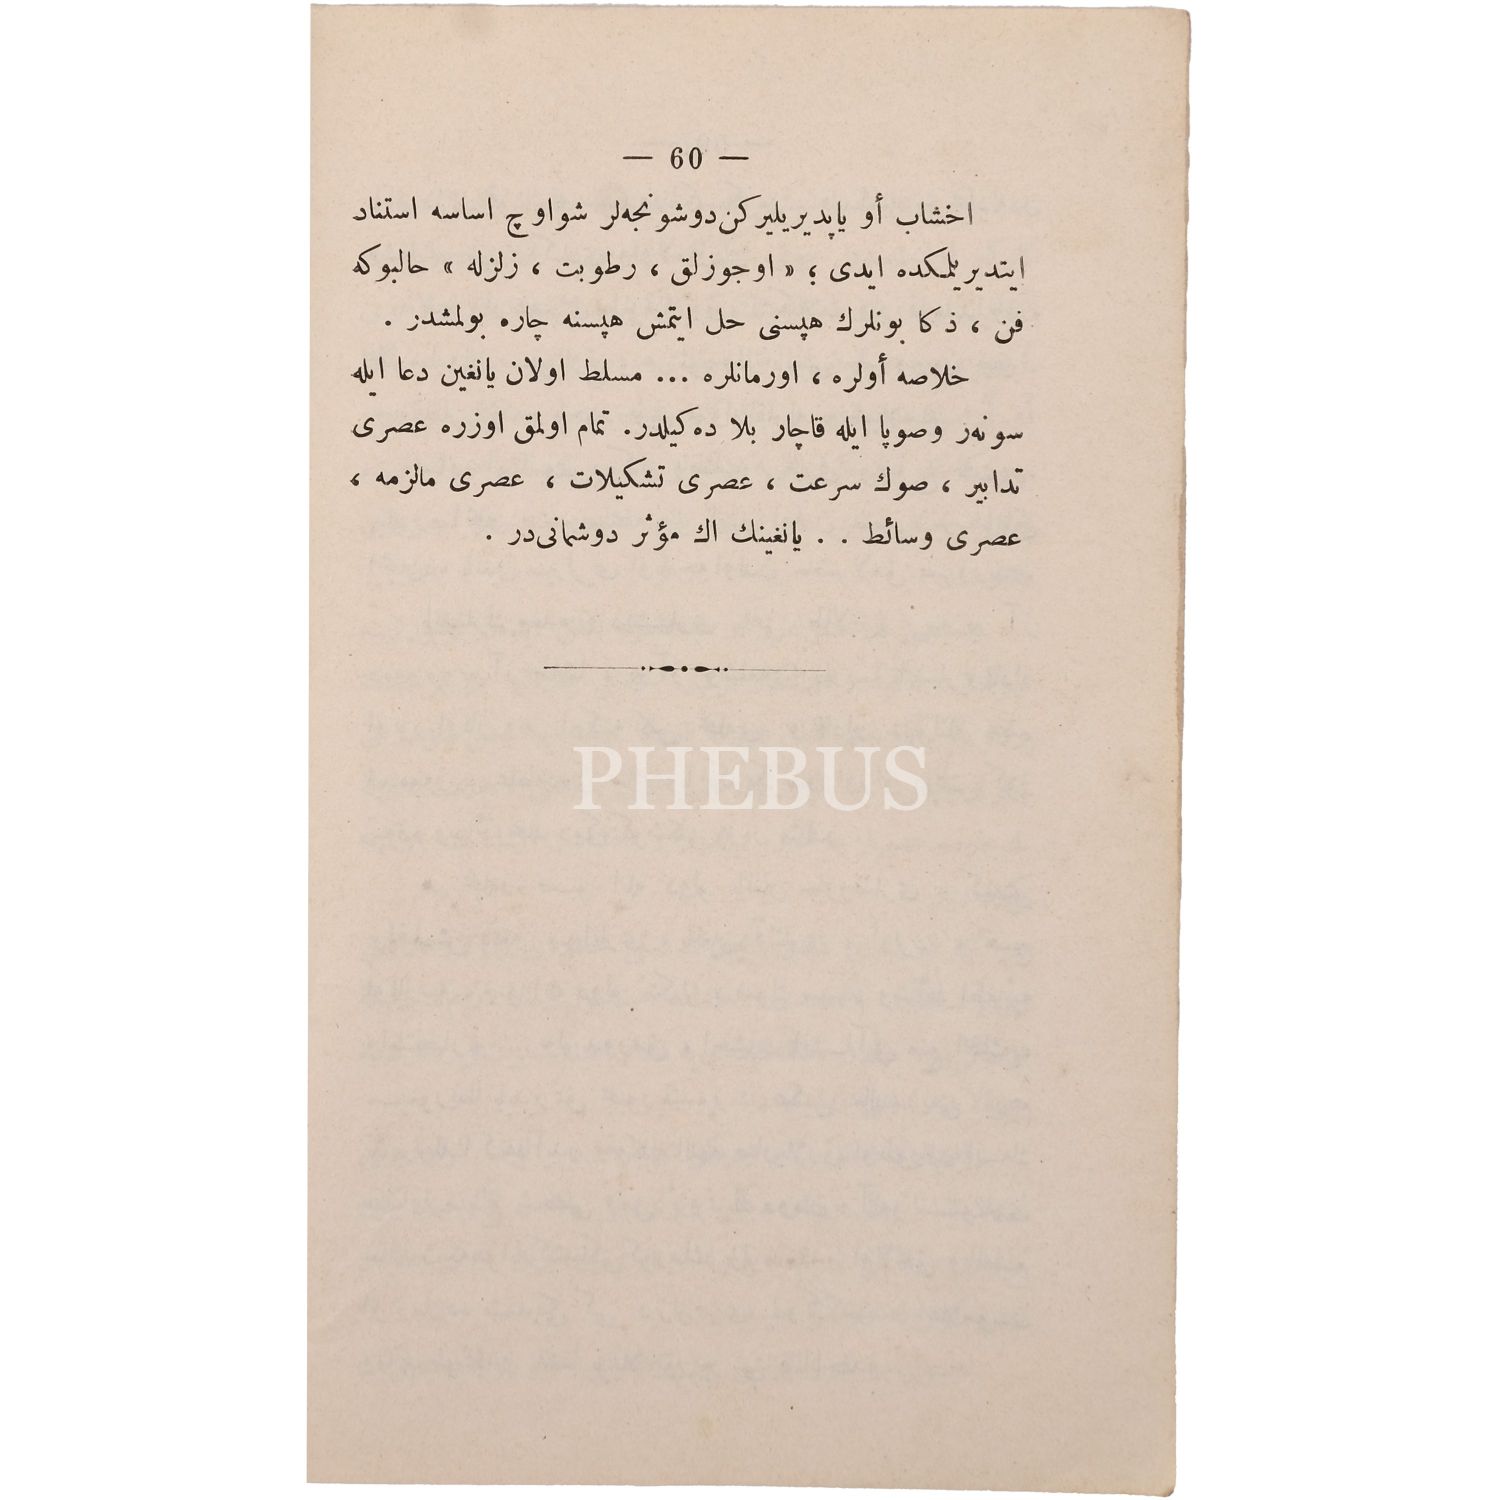 — 60 —
اخشاب أو ياپديريليركن دوشونجه‌لر شو اوچ اساسه استناد
ايتديريلمكده ايدى ؛ « اوجوزلق ، رطوبت ، زلزله » حالبوكه
فن ، ذكا بونلرك هپسنى حل ايتمش هپسنه چاره بولمشدر .
خلاصه أولره ، اورمانلره ... مسلط اولان يانغين دعا ايله
سونه‌ر وصوپا ايله قاچار بلا ده‌كيلدر. تمام اولمق اوزره عصرى
تدابير ، صوك سرعت ، عصرى تشكيلات ، عصرى مالزمه ،
عصرى وسائط . . يانغينك اك مؤثر دوشمانى‌در .
PHEBUS